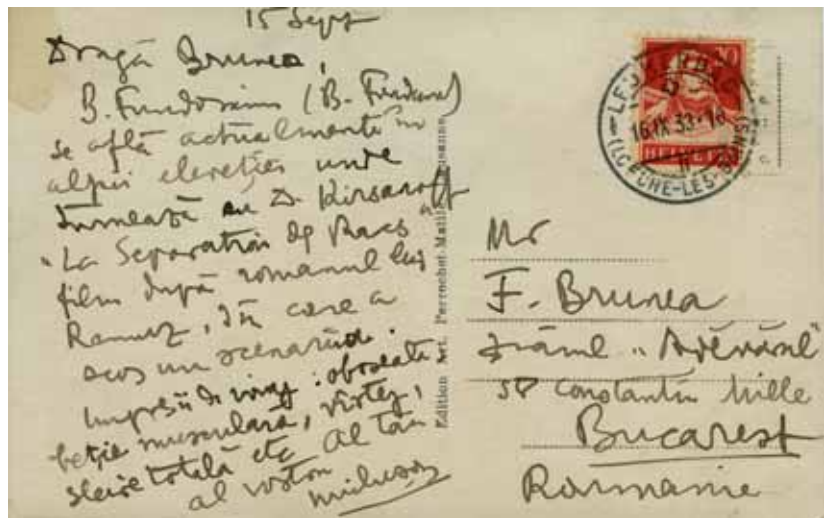 15 Sept
Dragă Brunea,
B. Fundoianu (B. Fondane)
se află actualmente în
alpii elveției unde
turnează cu D. Kirsanoff
"La Separation des Races"
film după romanul lui
Ramuz, din care a
scos un scenariu.
Impresii de voiaj: oboseală
beție musculară, vertej,
sleire totală etc Al tău
al vostru
Edition Art. Perrochet-Matile, Lausanne
16.IX.33
(LOÈCHE-LES-BAINS)
HELVETIA
Mr
F. Brunea
Ziarul "Adevărul"
Constantin Mille
Bucarest
Roumanie